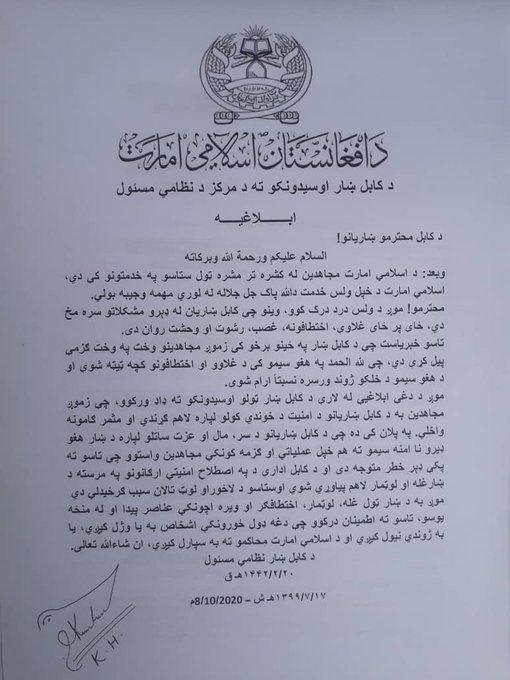 د افغانستان اسلامي امارت
د کابل ښار اوسیدونکو ته د مرکز د نظامي مسئول
ابـلاغیـه
د کابل محترمو ښاریانو!
السلام علیکم ورحمة الله وبرکاته
وبعد: د اسلامي امارت مجاهدین له کشره تر مشره ټول ستاسو په خدمتونو کی دي،
اسلامي امارت د خپل ولس خدمت دالله پاک جل جلاله له لوري مهمه وجیبه بولي.
محترمو! موږ د ولس درد درک کوو، وینو چي کابل ښاریان له ډېرو مشکلاتو سره مخ
دي، ځای پر ځای غلاوي، اختطافونه، غصب، رشوت او وحشت روان دی.
تاسو خبریاست چي د کابل ښار په ځینو برخو کی زموږ مجاهدینو وخت په وخت ګزمې
پیل کړی دي، چي لله الحمد په هغو سیمو کي د غلاوو او اختطافونو کچه ټیټه شوی او
د هغو سیمو د خلکو ژوند ورسره نسبتاً آرام شوی.
موږ د دغې ابلاغیې له لاري د کابل ښار ټولو اوسیدونکو ته ډاډ ورکوو، چي زموږ
مجاهدین به د کابل ښاریانو د امنیت د خوندي کولو لپاره لاهم ګړندي او مثمر ګامونه
واخلي. په پلان کي ده چي د کابل ښاریانو د سر، مال او عزت ساتلو لپاره د ښار هغو
ډیرو نا امنه سیمو ته هم خپل عملیاتي او ګزمه کونکي مجاهدین واستوو چي تاسو ته
پکې ډېر خطر متوجه دی او د کابل اداري د په اصطلاح امنیتي ارګانونو په مرسته د
ښارغله او لوټمار لاهم پیاوړي شوي اوستاسو د لاخوراو لوټ تالان سبب ګرځیدلي دي
موږ به د ښار ټول غله، لوټمار، اختطافګر او ویره اچونکي عناصر پیدا او له منځه
یوسو، تاسو ته اطمینان درکوو چي دغه ډول ځورونکي اشخاص به یا وژل کیږي، یا
به ژوندي نیول کیږي او د اسلامي امارت محاکمو ته به سپارل کیږي، ان شاءالله تعالی.
د کابل ښار نظامي مسئول
۱۴۴۲/۲/۲۰هـ ق
۱۳۹۹/۷/۱۷هـ ش – 8/10/2020م
K.H.